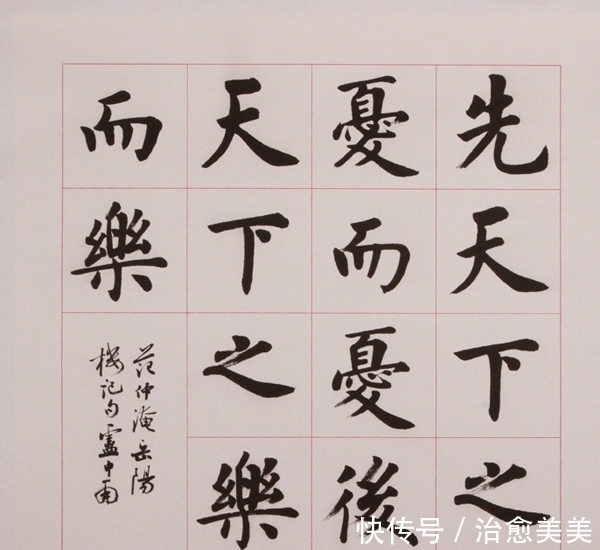 先天下之
憂而憂後
天下之樂
而樂
范仲淹岳陽
樓記句盧中南
快传号 / 治愈美美